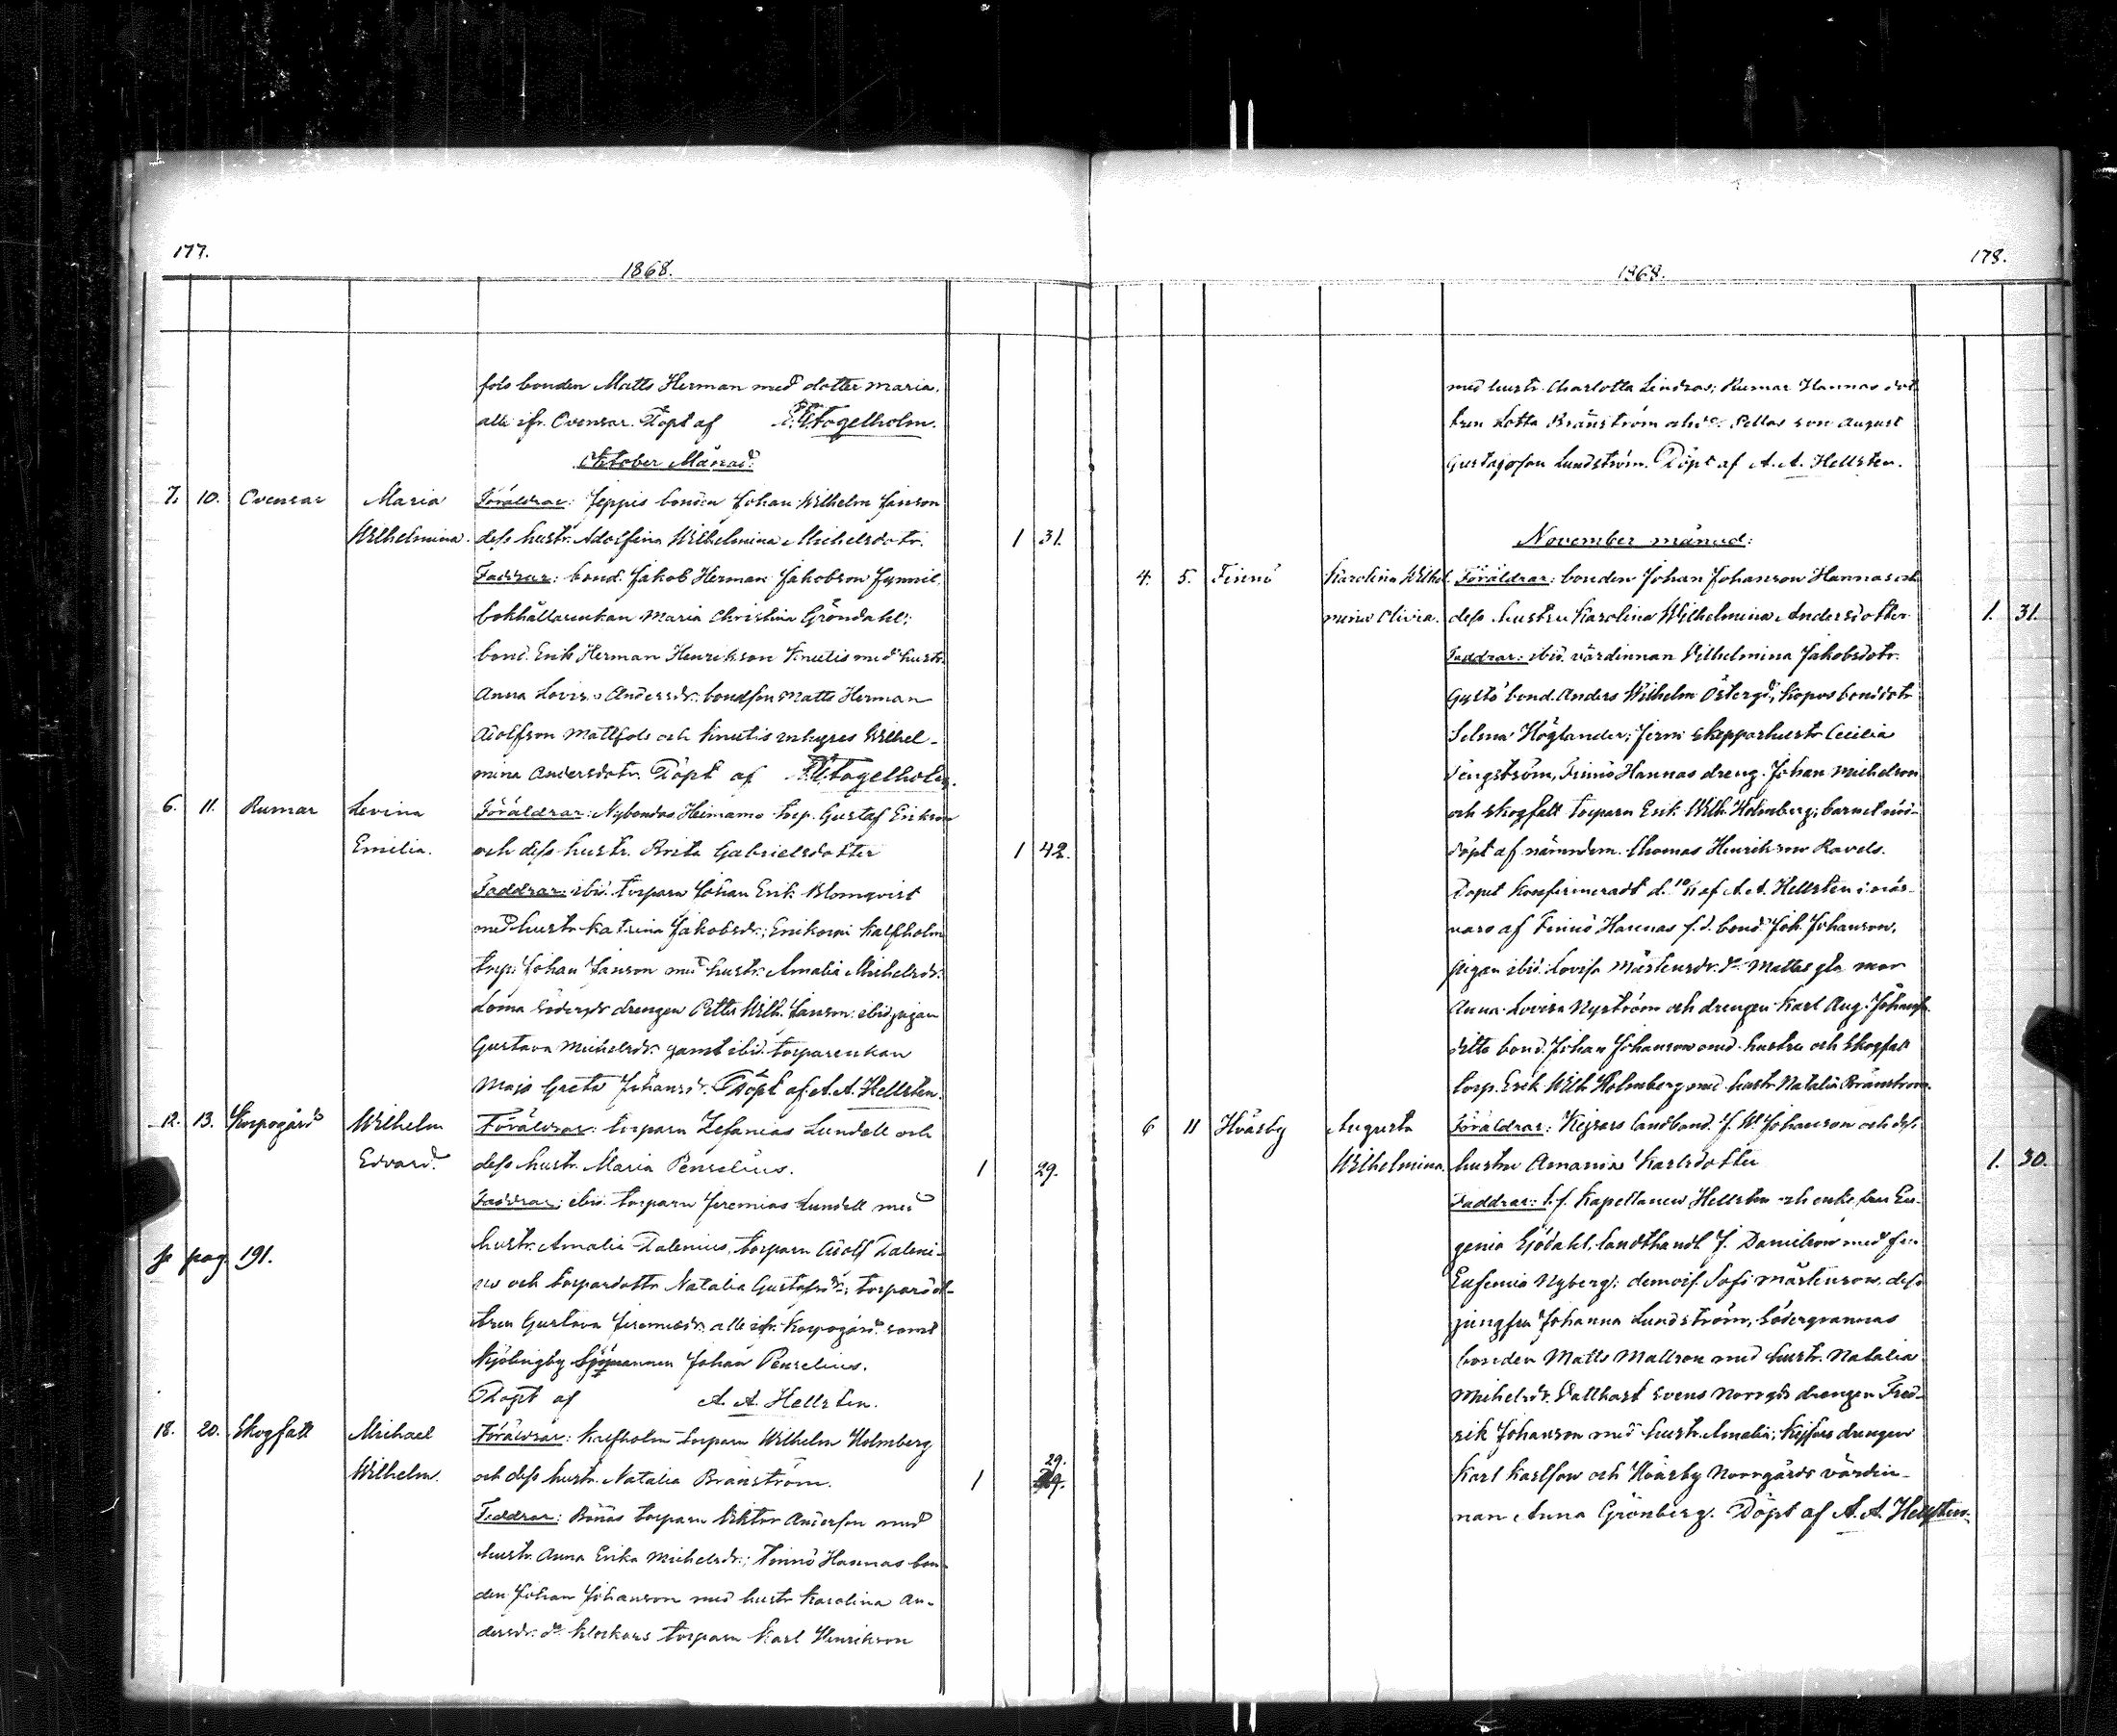 177.
1868.
fols bonden Matts Herman med dotter Maria,
alla ifr. Ovensar. Döpt af Fogelholm.
Oktober Månad:
7. 10. Ovensar Maria Föräldrar: Jeppis bonden Johan Wilhelm Janson
Wilhelmina. dess hustr. Adolfina Wilhelmina Michelsdotr. 1 31.
Faddrar: bond. Jakob Herman Jakobson
bokhållarenkan Maria Christina Gröndahl;
bond. Erik Herman Henrikson Knutis med hustr.
Anna Lovisa Andersdr. bondson Matts Herman
Adolfson Mattfols och Knutis inhyses Wilhel-
mina Andersdotr. Döpt af Fogelholm.
6. 11. Rumar Levina Föräldrar: Nybondas Heimamo torp. Gustaf Erikson
Emilia. och dess hustr. Brita Gabrielsdotter 1 42.
Faddrar: ibid. torparn Johan Erik Blomqvist
med hustr. Katrina Jakobsdr.; Kalfholm
torp. Johan Janson med hustr. Amalia Michelsdr.
drengen Petter Wilh. Janson: ibid. pigan
Gustava Michelsdr. samt ibid. torparenkan
Maja Greta Johansdr. Döpt af A. A. Hellsten.
12. 13. Korpogård Wilhelm Föräldrar: torparn Zefanias Lundell och
Edvard. dess hustr. Maria Penselius. 1 29.
Faddrar: ibid. torparn Jeremias Lundell med
hustr. Amalia Dalenius, torparn Adolf Daleni-
us och torpardottr. Natalia Gustafsdr.; torparedot-
tren Gustava Jeremiasdr. alla ifr. Korpogård samt
sjömannen Johan Penselius.
Döpt af A. A. Hellsten.
se pag. 191.
18. 20. Skogfall Michael Föräldrar: Kalfholm torparn Wilhelm Holmberg
Wilhelm. och dess hustr. Natalia Bränström. 1 29.
Faddrar: torparn Viktor Anderson med
hustr. Anna Erika Michelsdr.; Finnö Hannas bon-
den Johan Johanson med hustr. Karolina An-
dersdr. do Klockars torparn Karl Henrikson
178.
1868.
med hustr. Charlotta Lindros; Rumar Hannas dot
tren Lotta Bränström och Pellas son August
Gustafsson Lundström. Döpt af A. A. Hellsten.
November månad:
4. 5. Finnö Karolina Wilhel Föräldrar: bonden Johan Johanson Hannas och
mina Olivia. dess hustru Karolina Wilhelmina Andersdotter 1. 31.
Faddrar: ibid. värdinnan Vilhelmina Jakobsdotr.
Gyltö bond. Anders Wilhelm Östergd; bonddotr.
Selma Höglander; Jermo skepparhustr. Cecilia
Sengström, Finnö Hannas dreng. Johan Michelson
och Skogfall torparn Erik Wilh. Holmberg; barnet nöd-
döpt af nämndem. Thomas Henrikson Ravels.
Dopet konfirmeradt d. 10/11 af A. A. Hellsten i när-
varo af Finnö Hannas f. d. bond. Joh. Johanson,
pigan ibid. Lovisa Mårtensdr. do Mattas gla mor
Anna Lovisa Nyström och drengen Karl Aug. Johanson
ditto bond. Johan Johanson med hustru och Skogfall
torp. Erik Wilh. Holmberg med hustr. Natalia Bränström.
6 11 Hväsby Augusta Föräldrar: Kejsars landbond. J. W. Johanson och dess
Wilhelmina. hustru Amanda Karlsdotter 1. 30.
Faddrar: t. f. Kapellanen Hellsten och enkefru Eu-
genia Sjödahl, landthandl. J. Danielson med fru
Eufemia Nyberg; demois. Sofi Mårtenson, dess
jungfru Johanna Lundström, Södergrannas
bonden Matts Mattson med hustr. Natalia
Michelsdr. Svens Norrgårds drengen Fred-
rik Johanson med hustr. Amalia; Kejsars drengen
Karl Karlsson och Hväsby Norrgårds värdin-
nan Anna Grönberg. Döpt af A. A. Hellsten.